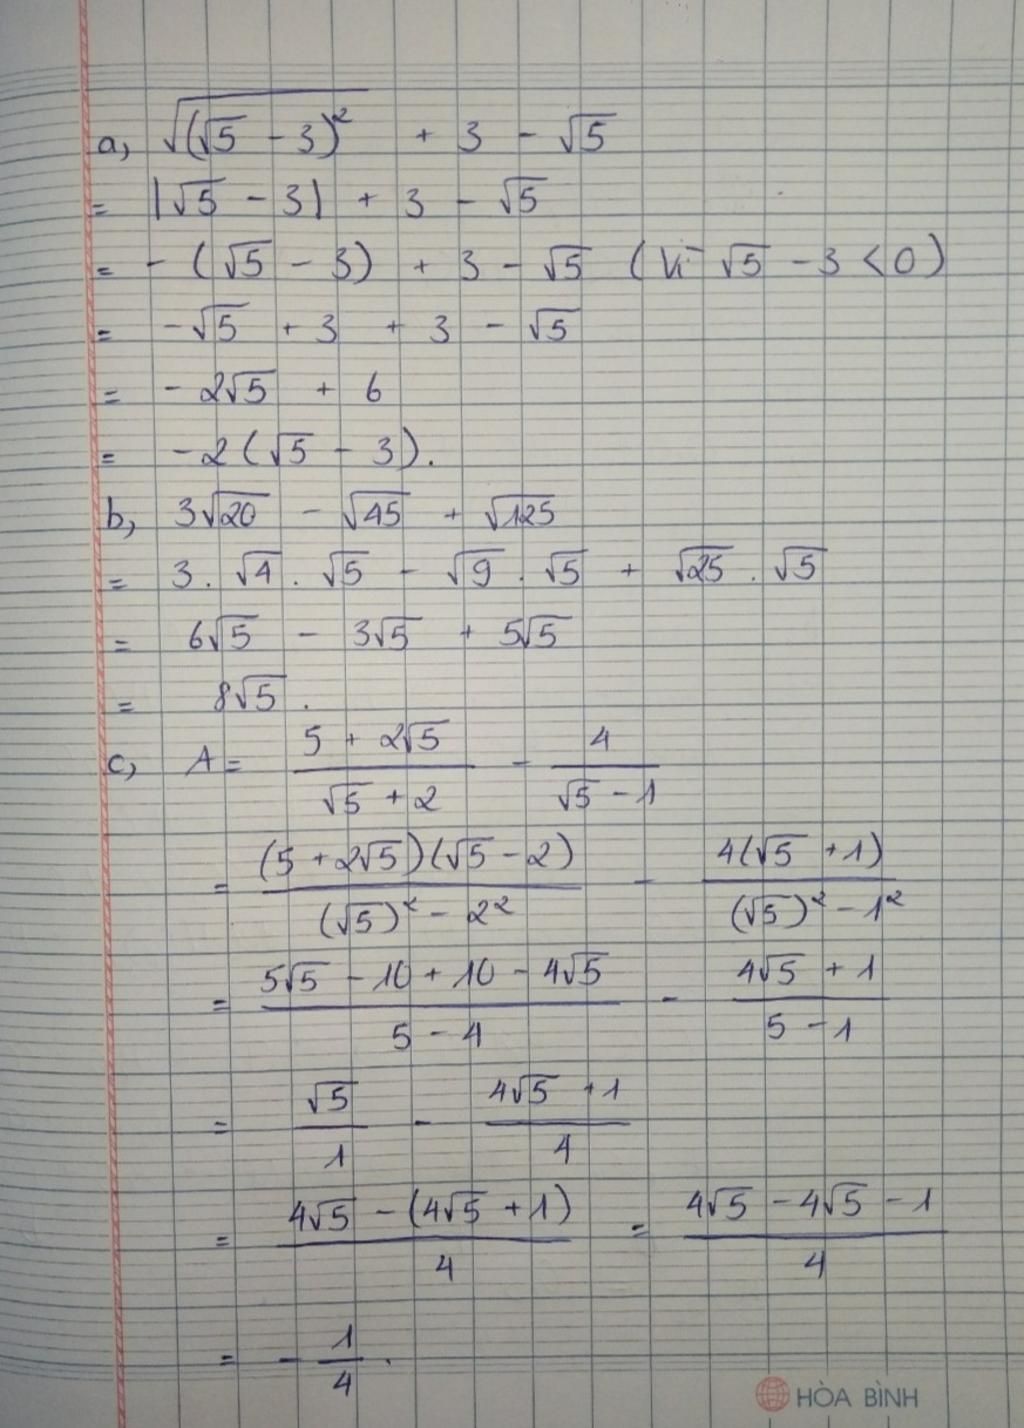 a, √(√5 - 3)² + 3 - √5
= |√5 - 3| + 3 - √5
= - (√5 - 3) + 3 - √5 (Vì √5 - 3 < 0)
= -√5 + 3 + 3 - √5
= - 2√5 + 6
= -2(√5 - 3).
b, 3√20 - √45 + √125
= 3 . √4 . √5 - √9 . √5 + √25 . √5
= 6√5 - 3√5 + 5√5
= 8√5 .
c, A = (5 + 2√5)/(√5 + 2) - 4/(√5 - 1)
= (5 + 2√5)(√5 - 2)/((√5)² - 2²) - 4(√5 + 1)/((√5)² - 1²)
= (5√5 - 10 + 10 - 4√5)/(5 - 4) - (4√5 + 1)/(5 - 1)
= √5/1 - (4√5 + 1)/4
= (4√5 - (4√5 + 1))/4 = (4√5 - 4√5 - 1)/4
= - 1/4 .
HÒA BÌNH